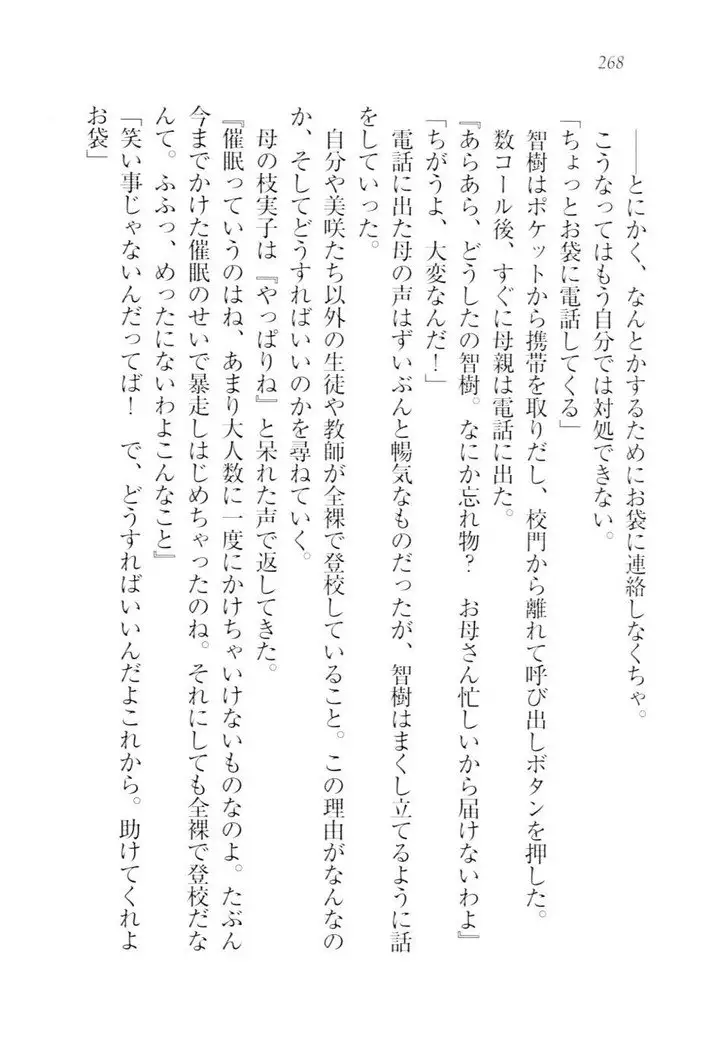 268
――とにかく、なんとかするためにお袋に連絡しなくちゃ。
こうなってはもう自分では対処できない。
「ちょっとお袋に電話してくる」
智樹はポケットから携帯を取りだし、校門から離れて呼び出しボタンを押した。
数コール後、すぐに母親は電話に出た。
『あらあら、どうしたの智樹。なにか忘れ物？　お母さん忙しいから届けないわよ』
「ちがうよ、大変なんだ！」
電話に出た母の声はずいぶんと暢気なものだったが、智樹はまくし立てるように話
をしていった。
自分や美咲たち以外の生徒や教師が全裸で登校していること。この理由がなんなの
か、そしてどうすればいいのかを尋ねていく。
母の枝実子は『やっぱりね』と呆れた声で返してきた。
『催眠っていうのはね、あまり大人数に一度にかけちゃいけないものなのよ。たぶん
今までかけた催眠のせいで暴走しはじめちゃったのね。それにしても全裸で登校だな
んて。ふふっ、めったにないわよこんなこと』
「笑い事じゃないんだってば！　で、どうすればいいんだよこれから。助けてくれよ
お袋」